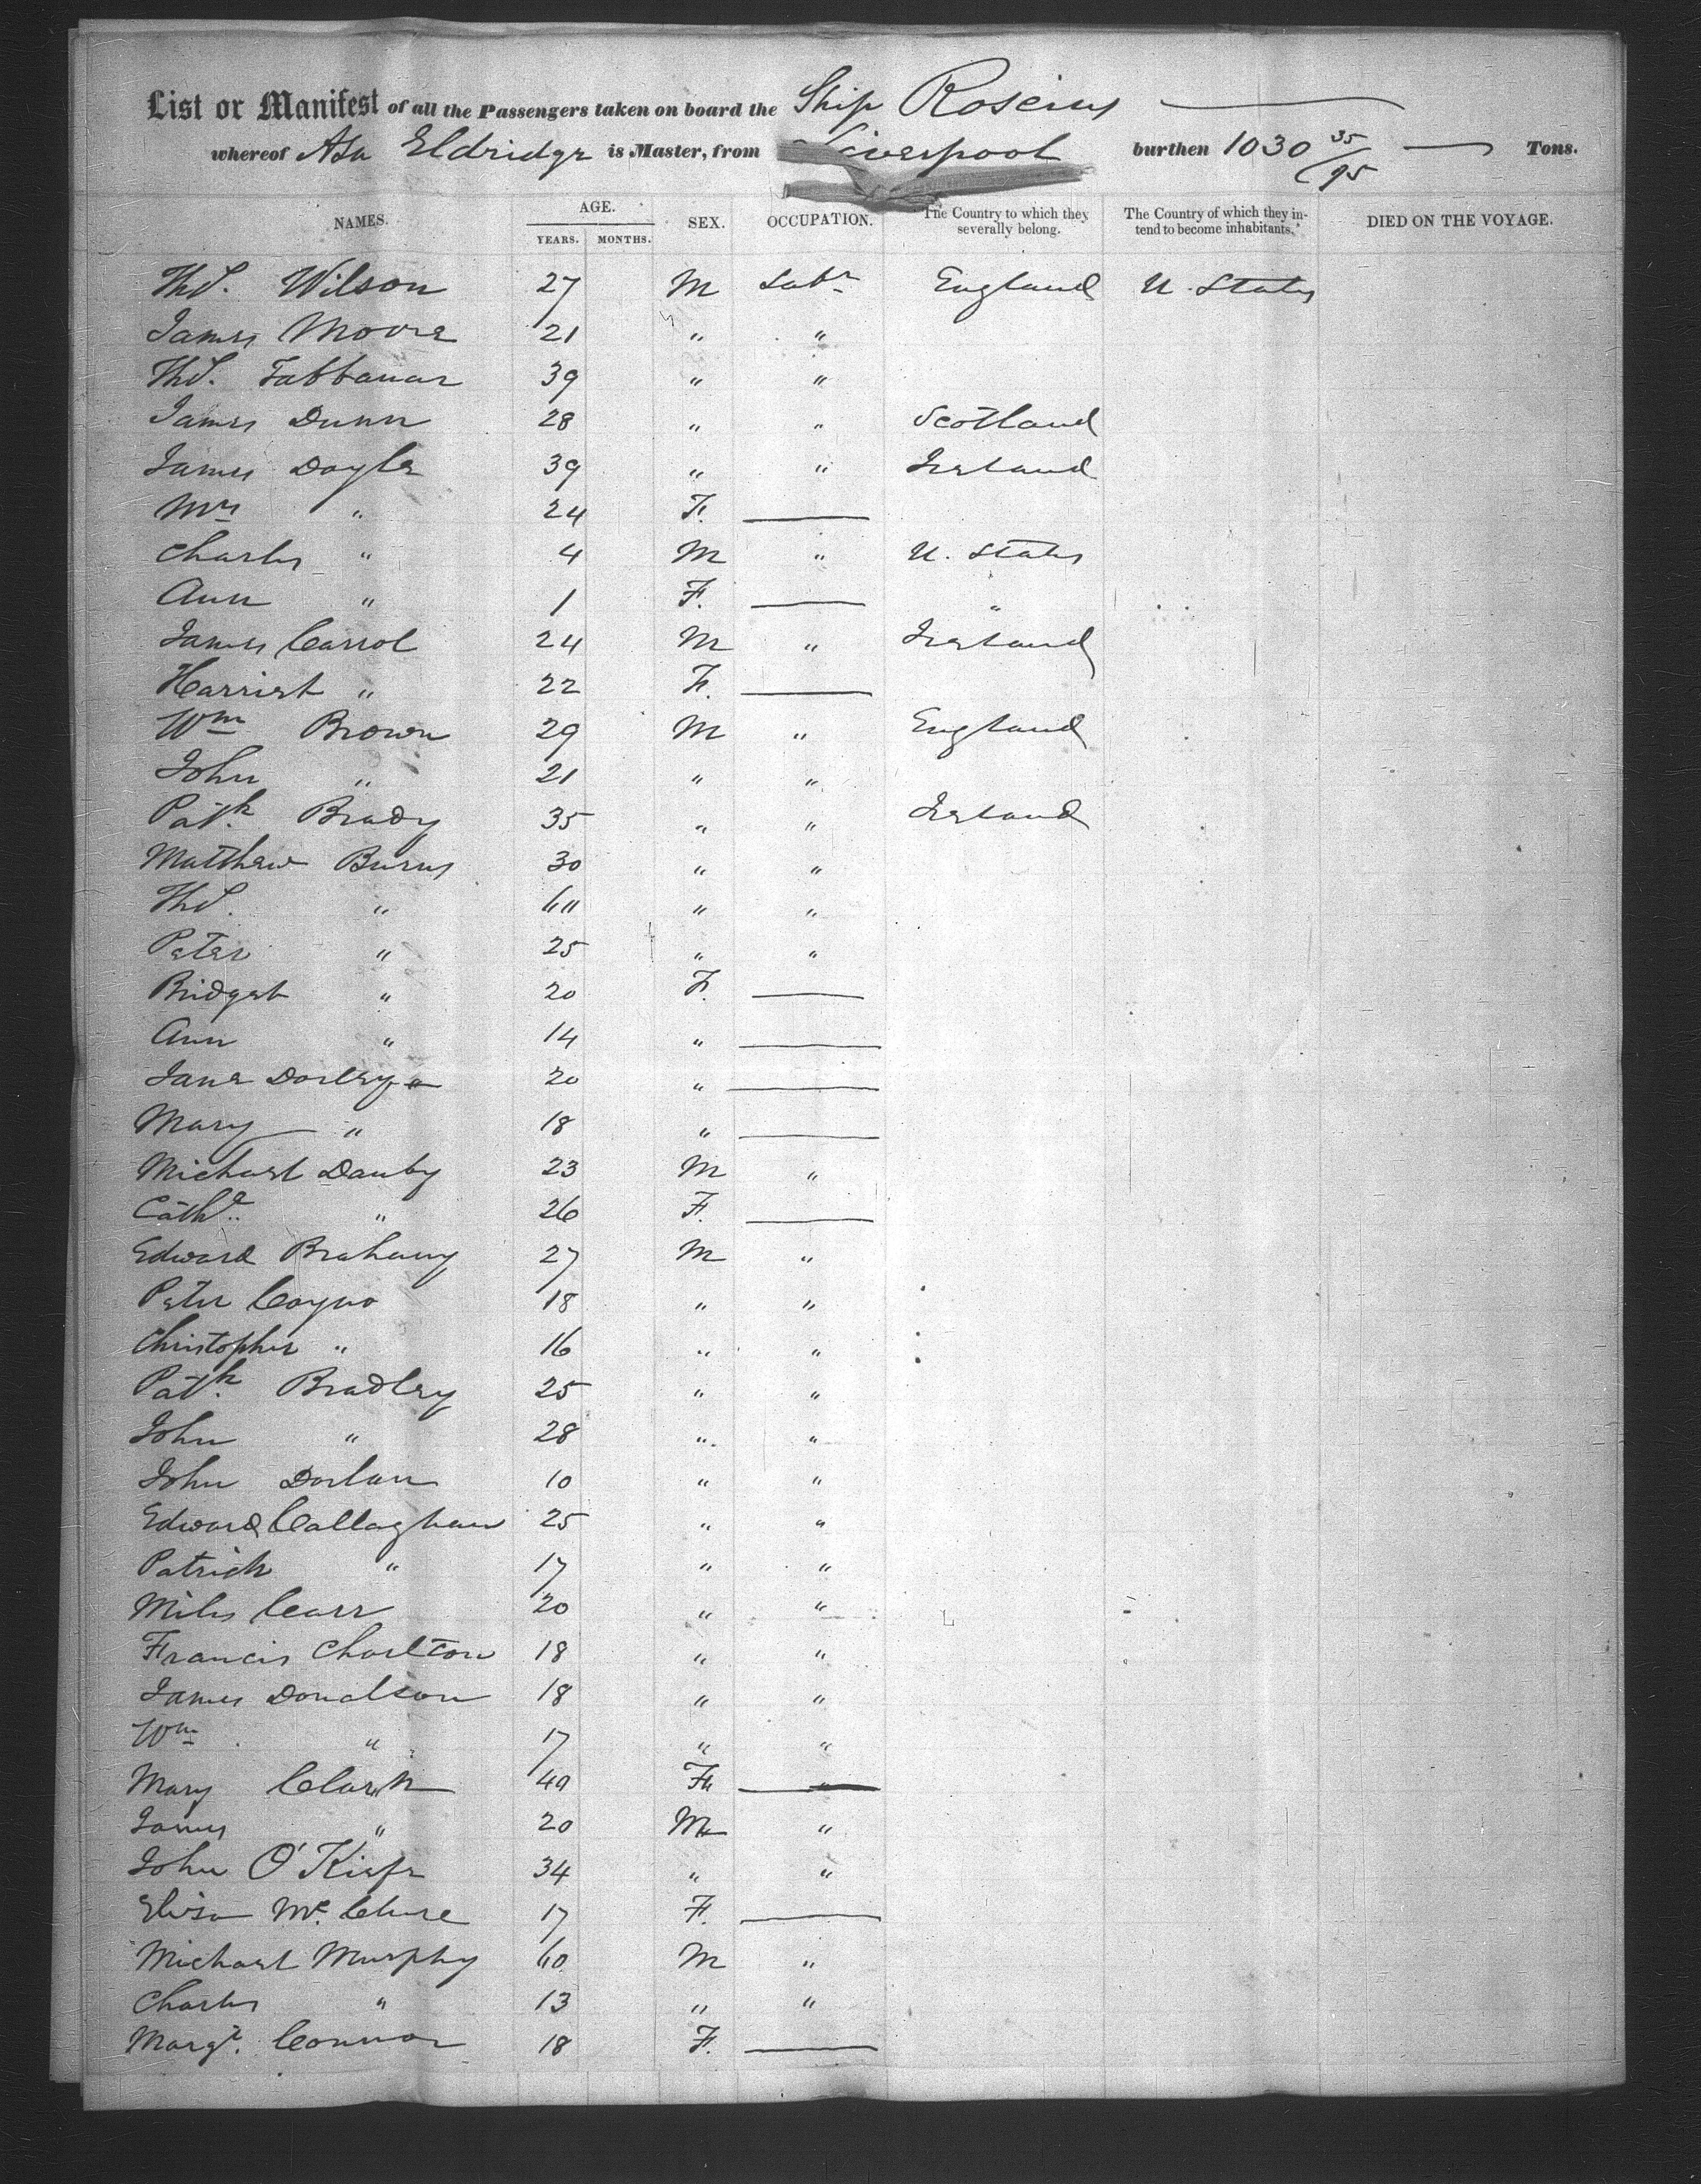 List or Manifest of all the Passengers taken on board the Ship Roscius
whereof Asa Eldridge is Master, from Liverpool burthen 1030 35/95 Tons.
NAMES. AGE. YEARS. MONTHS. SEX. OCCUPATION. The Country to which they severally belong. The Country of which they intend to become inhabitants. DIED ON THE VOYAGE.
Thos. Wilson 27 M Labr England U. States
James Moore 21 " "
Thos. 39 " "
James Dunn 28 " " Scotland
James Doyle 39 " " Ireland
Mrs " 24 F. —
Charles " 4 M " U. States
Ann " 1 F. — "
James Carrol 24 M " Ireland
Harriet " 22 F. —
Wm Brown 29 M " England
John " 21 " "
Patk. Brady 35 " " Ireland
Matthew Burns 30 " "
Thos. " 60 " "
Peter " 25 " "
Bridget " 20 F. —
Ann " 14 " —
Jane 20 " —
Mary " 18 " —
Michael Danby 23 M "
Cathe. " 26 F. —
Edward 27 M "
Peter Coyne 18 " "
Christopher " 16 " "
Patk. Bradley 25 " "
John " 28 " "
John 10 " "
Edward Callaghan 25 " "
Patrick " 17 " "
Miles Carr 20 " "
Francis Charlton 18 " "
James Donalson 18 " "
Wm " 17 " "
Mary Clark 40 F. —
James " 20 M "
John O'Kiefe 34 " "
Eliza Mc. Clure 17 F. —
Michael Murphy 60 M "
Charles " 13 " "
Margt. Connor 18 F. —